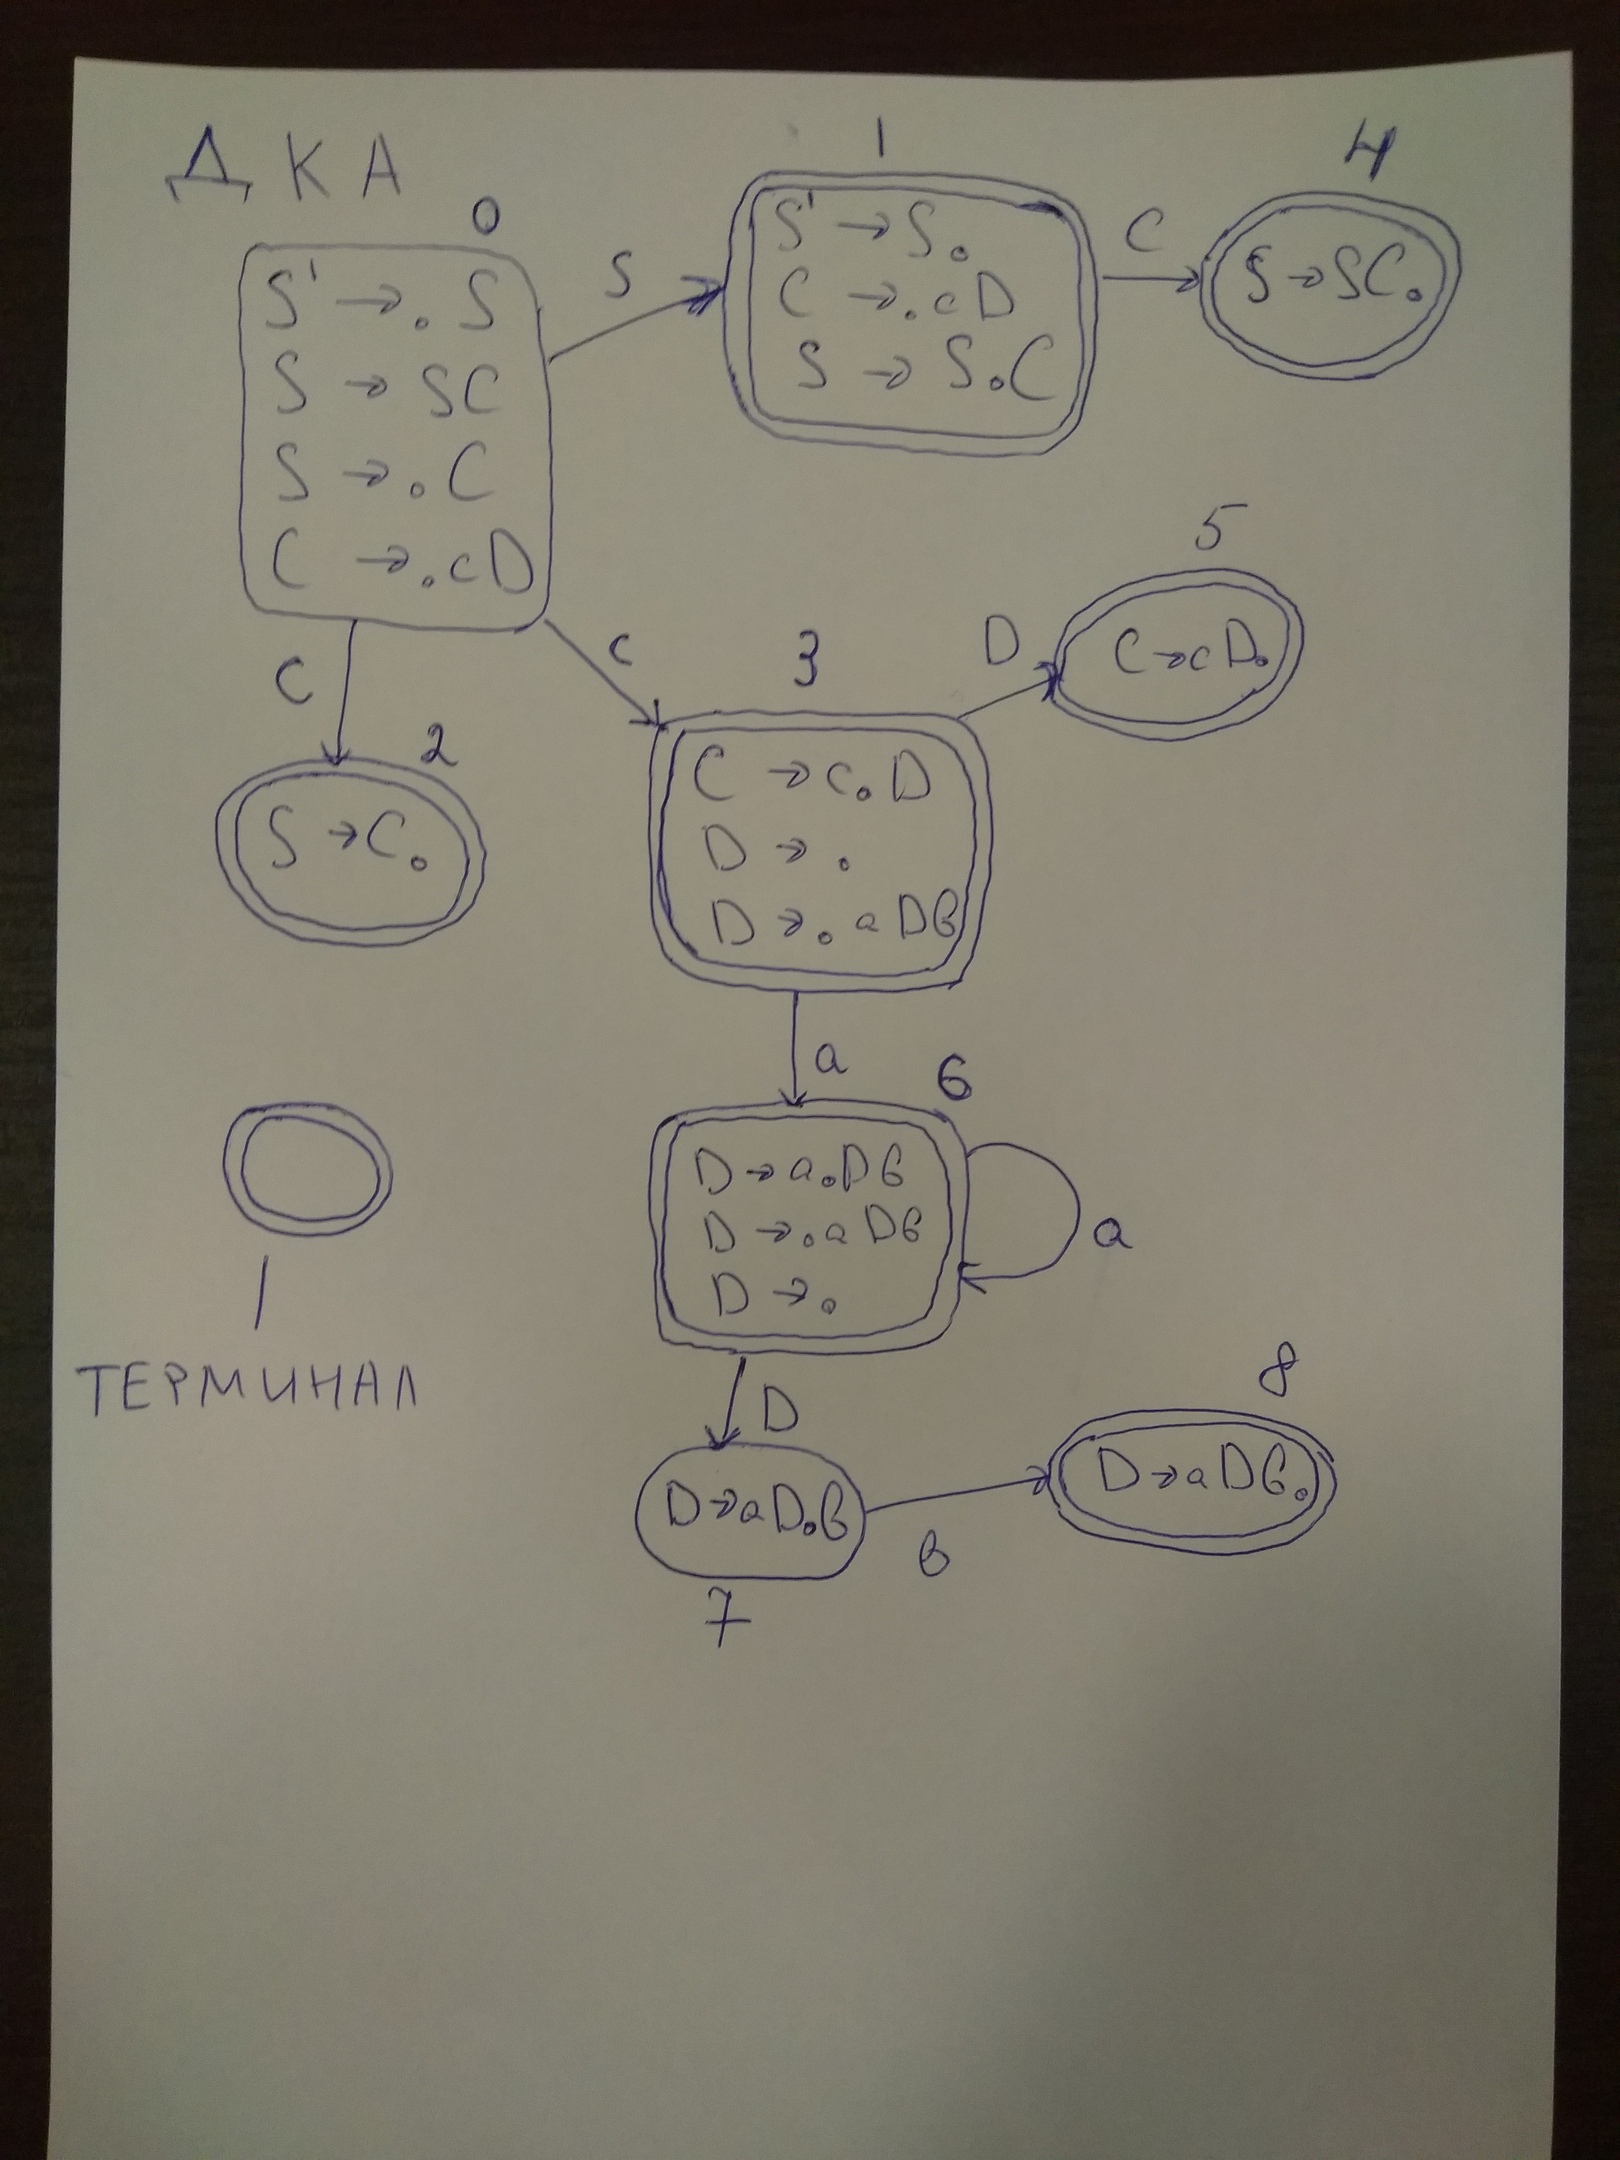 ДКА
0
S' → . S
S → SC
S → . C
C → . cD
S
1
S' → S .
C → . cD
S → S . C
C
4
S → SC .
C
2
S → C .
c
3
C → c . D
D → .
D → . aDb
D
5
C → cD .
a
6
D → a . Db
D → . aDb
D → .
a
D
D → aD . b
7
b
8
D → aDb .
ТЕРМИНАЛ